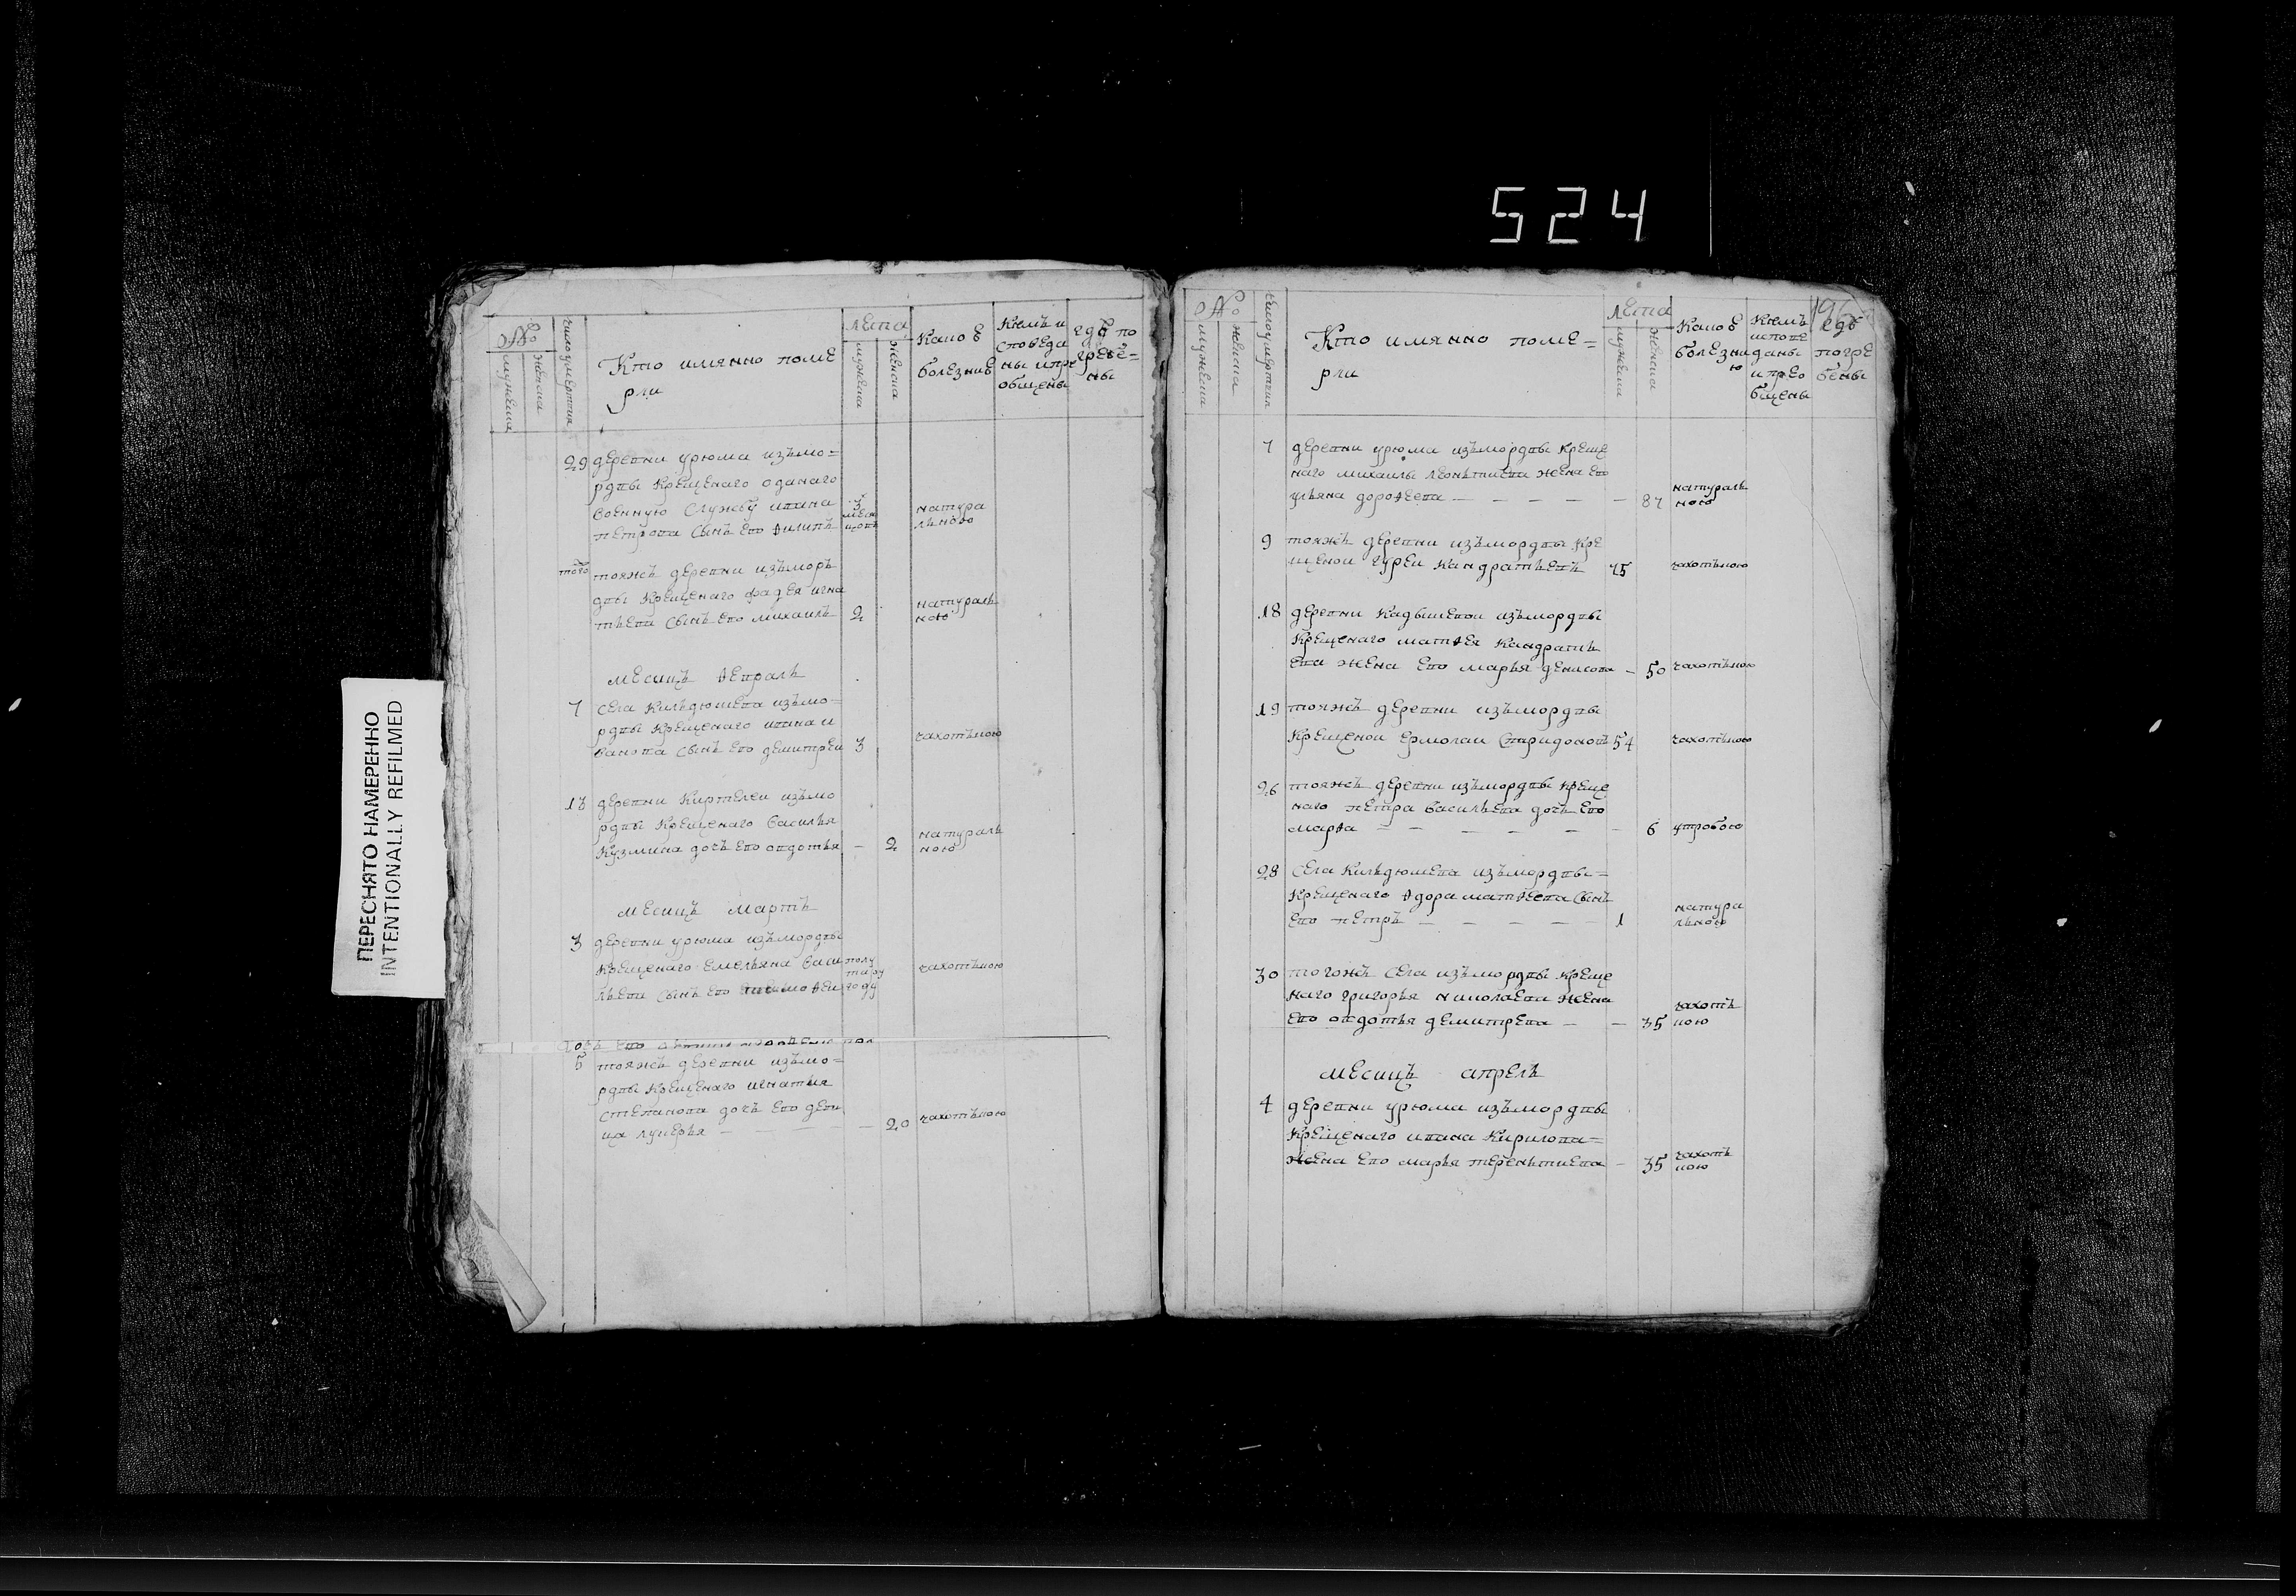 524
196
ПЕРЕСНЯТО НАМЕРЕННО
INTENTIONALLY REFILMED
№
мужеска
женска
число умертвия
Кто имянно поме
рли
лета
мужеска
женска
какою
болезние
кемъ и
споведа
ны и пре
общены
где по
гребе=
ны
29 деревни урюма изъ мо=
рдвы крещенаго оданаго
военную службу ивана
петрова сынъ его филипъ
3 меся
цовъ
натура
льною
того тояжъ деревни изъ морь
двы крещенаго фадея игна
тьева сынъ его михаилъ 2
натураль
ною
месицъ февраль
7 села килдюшева изъ мо=
рдвы крещенаго ивана и
ванова сынъ его демитреи 3 чахотною
13 деревни киртелеи изъ мо
рдвы крещенаго василья
кузмина дочь его овдотья — 2
натураль
ною
месицъ мартъ
3 деревни урюма изъ мордвы
крещенаго емельяна васи
льева сынъ его тимофеи
полу
тару
году
чахотною
дочь его
5 тояжъ деревни изъ мо=
рдвы крещенаго игнатья
степанова дочь его деви
ца лукерья — — — 20 чахотною
№
мужеска
женска
число умертвия
Кто имянно поме=
рли
лета
мужеска
женска
какое
болезни
ю
кемъ
испове
даны
и прео
бщены
где
погре
бены
7 деревни урюма изъ мордвы креще
наго михаилы леонтиева жена его
ульяна дорофеева — — — — — 87
натураль
ною
9 тояжъ деревни изъ мордвы кре
щеной гуреи кандратьевъ 75 чахотною
18 деревни кадышевои изъ мордвы
крещенаго матфея кандрать
ева жена его марья денисова — 50 чахотною
19 тояжъ деревни изъ мордвы
крещеной ермолаи спиридоновъ 54 чахотною
26 тояжъ деревни изъ мордвы креще
наго петра васильева дочь его
марфа — — — — — — 6 утробою
28 села килдюшева изъ мордвы=
крещенаго фдора матфеева сынъ
его петръ — — — — — 1
натура
льною
30 тогожъ села изъ мордвы креще
наго григорья николаева жена
его овдотья демитрева — — 35
чахот
ною
месицъ апрель
4 деревни урюма изъ мордвы
крещенаго ивана кирилова=
жена его марья терентиева — 35
чахот
ною